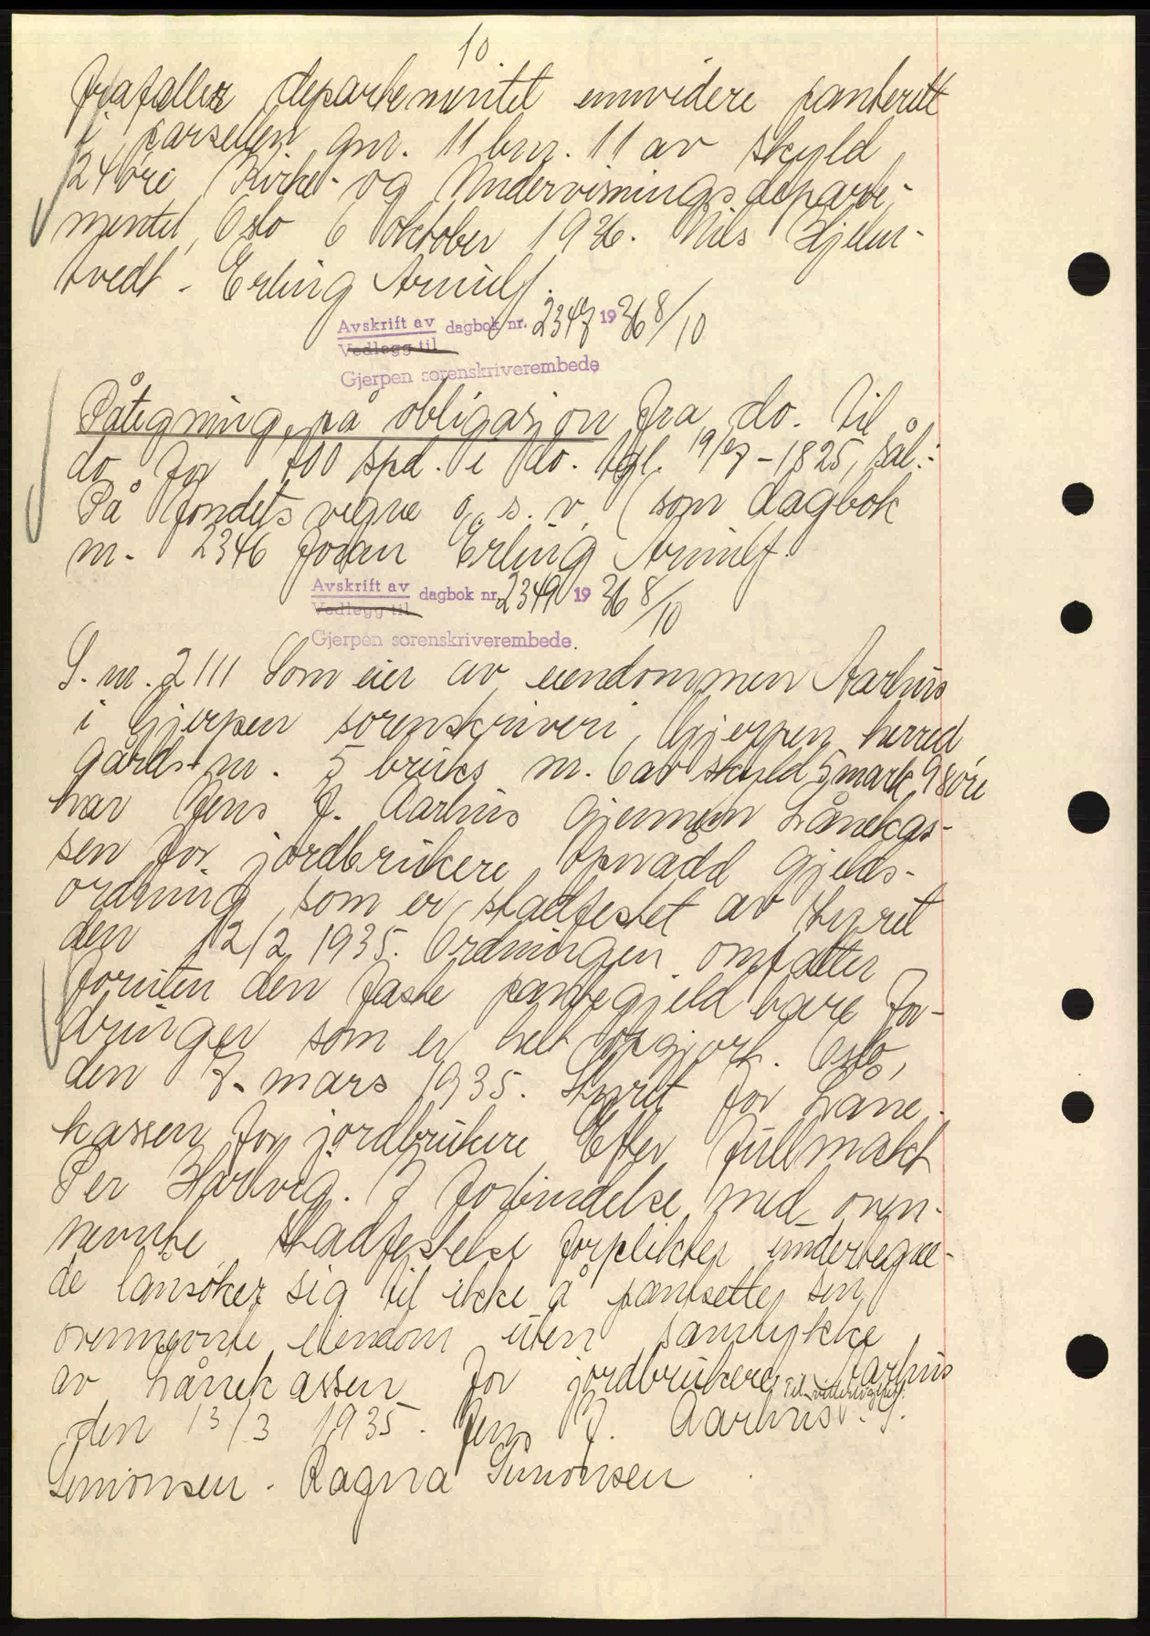 10
frafaller departementet ennvidere panterett
i parsellen gnr. 11 bnr. 11 av skyld
24 øre Kirke- og Undervisningsdeparte-
mentet, Oslo 6 oktober 1936. Nils Hjelm-
tvedt - Erling Arnulf.
Avskrift av dagbok nr. 2347 1936 8/10
Vedlegg til
Gjerpen sorenskriverembede
Påtegning på obligasjon fra do. til
do for 700 spd. i do. tgl. 19/7-1825, sål.:
På fondets vegne o. s. v. (som dagbok
nr. 2346 foran Erling Arnulf.
Avskrift av dagbok nr. 2349 1936 8/10
Vedlegg til
Gjerpen sorenskriverembede.
S. nr. 2111 Som eier av eiendommen Aarhus
i Gjerpen sorenskriveri, Gjerpen herred
gårds nr. 5 bruks nr. 6 av skyld 5 mark 98 øre
har Jens J. Aarhus gjennem Lånekas-
sen for jordbrukere opnådd gjelds-
ordning som er stadfestet av styret
den 12/2 1935. Ordningen omfatter
foruten den faste pantegjeld bare for-
dringer som er helt opgjort. Oslo,
den 7. mars 1935. Styret for Låne-
kassen for jordbrukere Efter fullmakt
Per Hartvig. I forbindelse med oven-
nevnte stadfestelse forplikter undertegne-
de lånsøker sig til ikke å pantsette sin
ovennevnte eiendom uten samtykke
av Lånekassen for jordbrukere, Aarhus
den 13/3 1935. Jens J. Aarhus. Til vitterlighet: S.
Simonsen. Ragna Simonsen